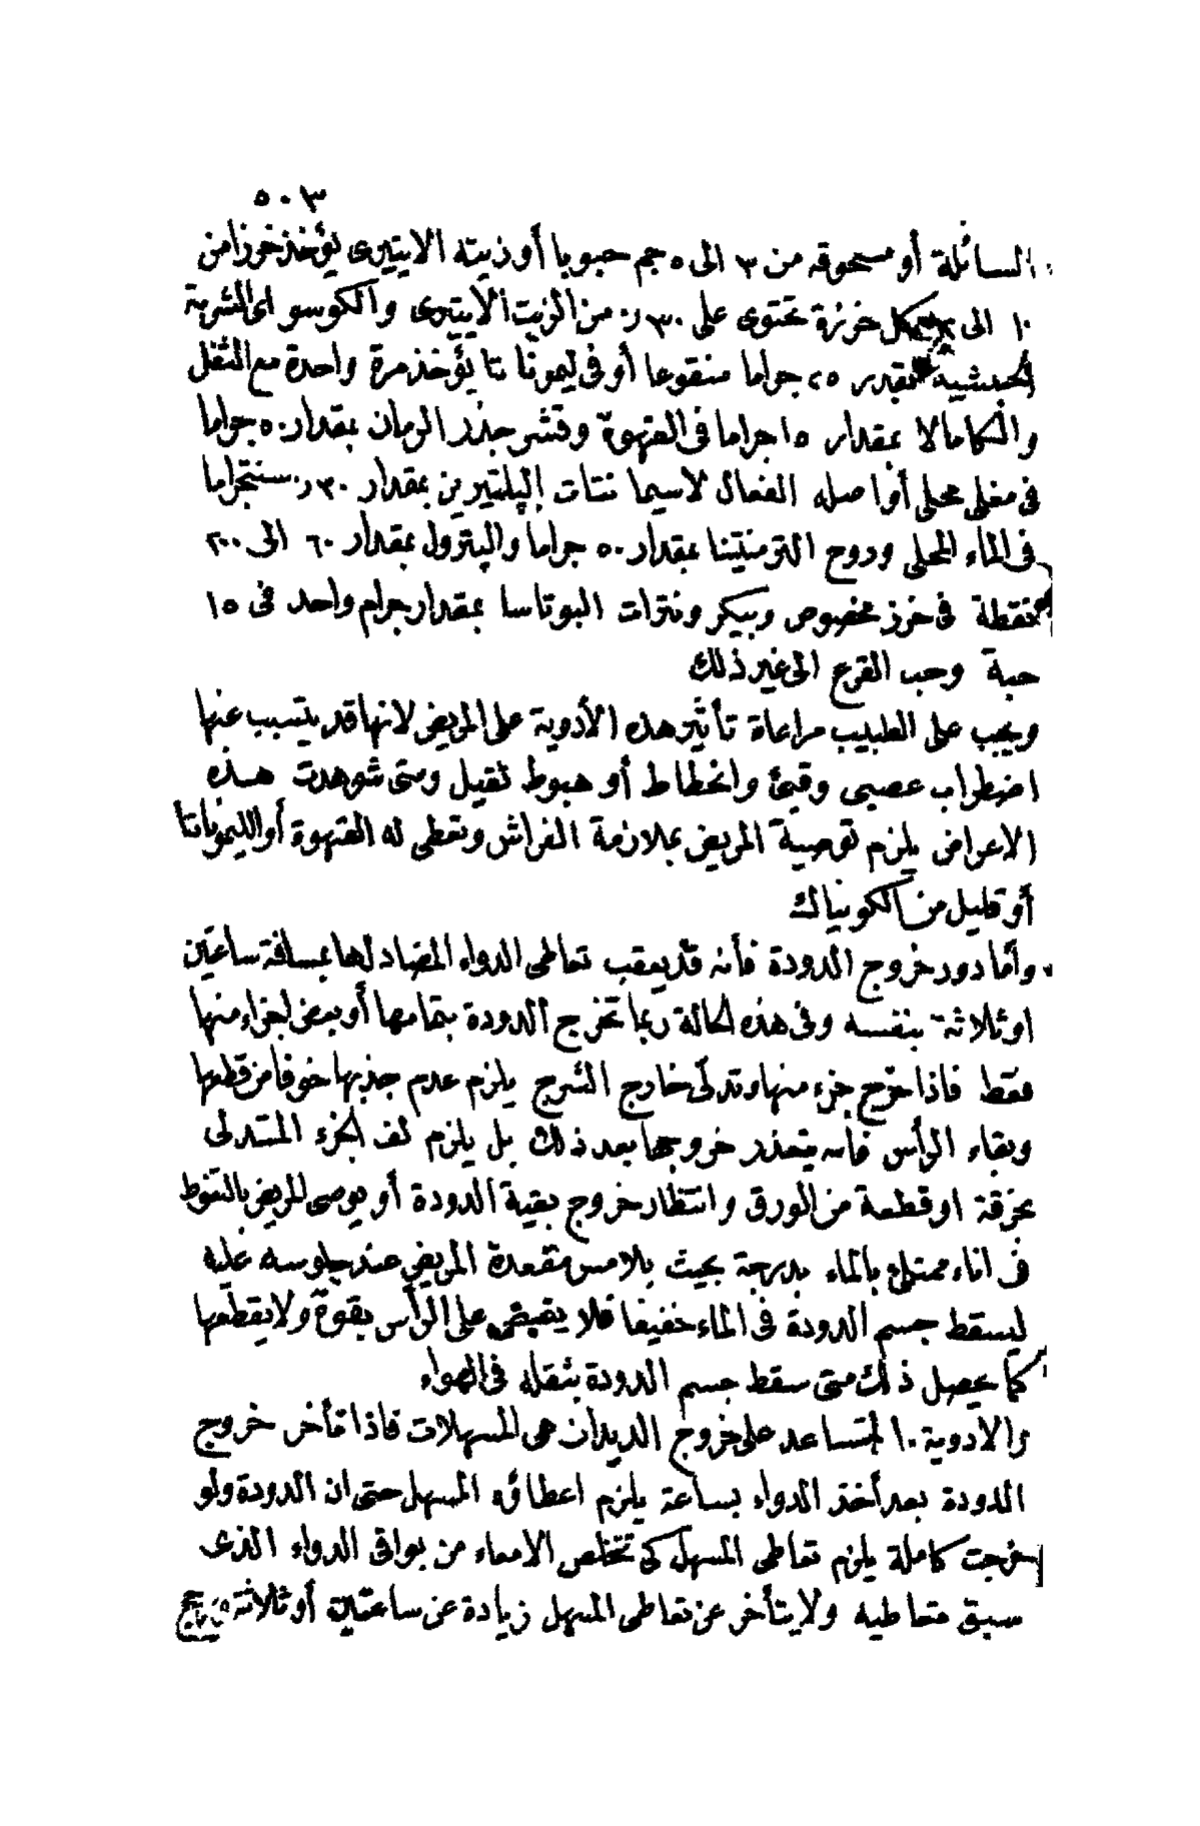 ٥٠٣
السائلة أو مسحوقه من ٣ الى ٥ جم حبوبا أو زيته الايتيرى يؤخذ خرزا من
١٠ الى كل خرزة تحتوى على ٣٠ر٠ من الزيت الايتيرى والكوسو اى الشربة
الحبشية بقدر ٢٥ جراما منقوعا أو فى ليموناتا يؤخذ مرة واحدة مع الثفل
والكامالا بمقدار ١٥ جراما فى القهوة وقشر جذر الرمان بمقدار ٥٠ جراما
فى مغلى محلى أو اصله الفعال لاسيما تنات الپلتيرين بمقدار ٣٠ر٠ سنتجراما
فى الماء المحلى وروح الترمنتينا بمقدار ٥٠ جراما والپترول بمقدار ٦٠ الى ٢٠٠
نقطة فى خرز مخصوص وبيكرونترات البوتاسا بمقدار جرام واحد فى ١٥
حبة وحب القرع الى غير ذلك
ويجب على الطبيب مراعاة تأثير هذه الأدوية على المريض لانها قد يتسبب عنها
اضطراب عصبى وقيئ وانحطاط أو هبوط ثقيل ومتى شوهدت هذه
الاعراض يلزم توصية المريض بملازمة الفراش وتعطى له القهوة أو الليموناتا
أو قليل من الكونياك
وأما دور خروج الدودة فأنه قد يعقب تعاطى الدواء المضاد لها بمسافة ساعتين
او ثلاثة بنفسه وفى هذه الحالة ربما تخرج الدودة بتمامها أو بعض اجزاء منها
فقط فاذا خرج جزء منها وتدلى خارج الشرج يلزم عدم جذبها خوفا من قطعها
وبقاء الرأس فأنه يتعذر خروجها بعد ذلك بل يلزم لف الجزء المتدلى
بخرقة او قطعة من الورق وانتظار خروج بقية الدودة أو يوصى المريض بالتغوط
فى اناء ممتلئ بالماء بدرجة بحيث يلامس مقعدة المريض عند جلوسه عليه
ليسقط جسم الدودة فى الماء خفيفا فلا يقبض على الرأس بقوة ولا يقطعها
كما يحصل ذلك متى سقط جسم الدودة بثقله فى الهواء
والادوية التى تساعد على خروج الديدان هى المسهلات فاذا تأخر خروج
الدودة بعد أخذ الدواء بساعة يلزم اعطاؤه المسهل حتى ان الدودة ولو
خرجت كاملة يلزم تعاطى المسهل كى تتخلص الامعاء من بواقى الدواء الذى
سبق تعاطيه ولا يتأخر عن تعاطى المسهل زيادة عن ساعتين أو ثلاثة